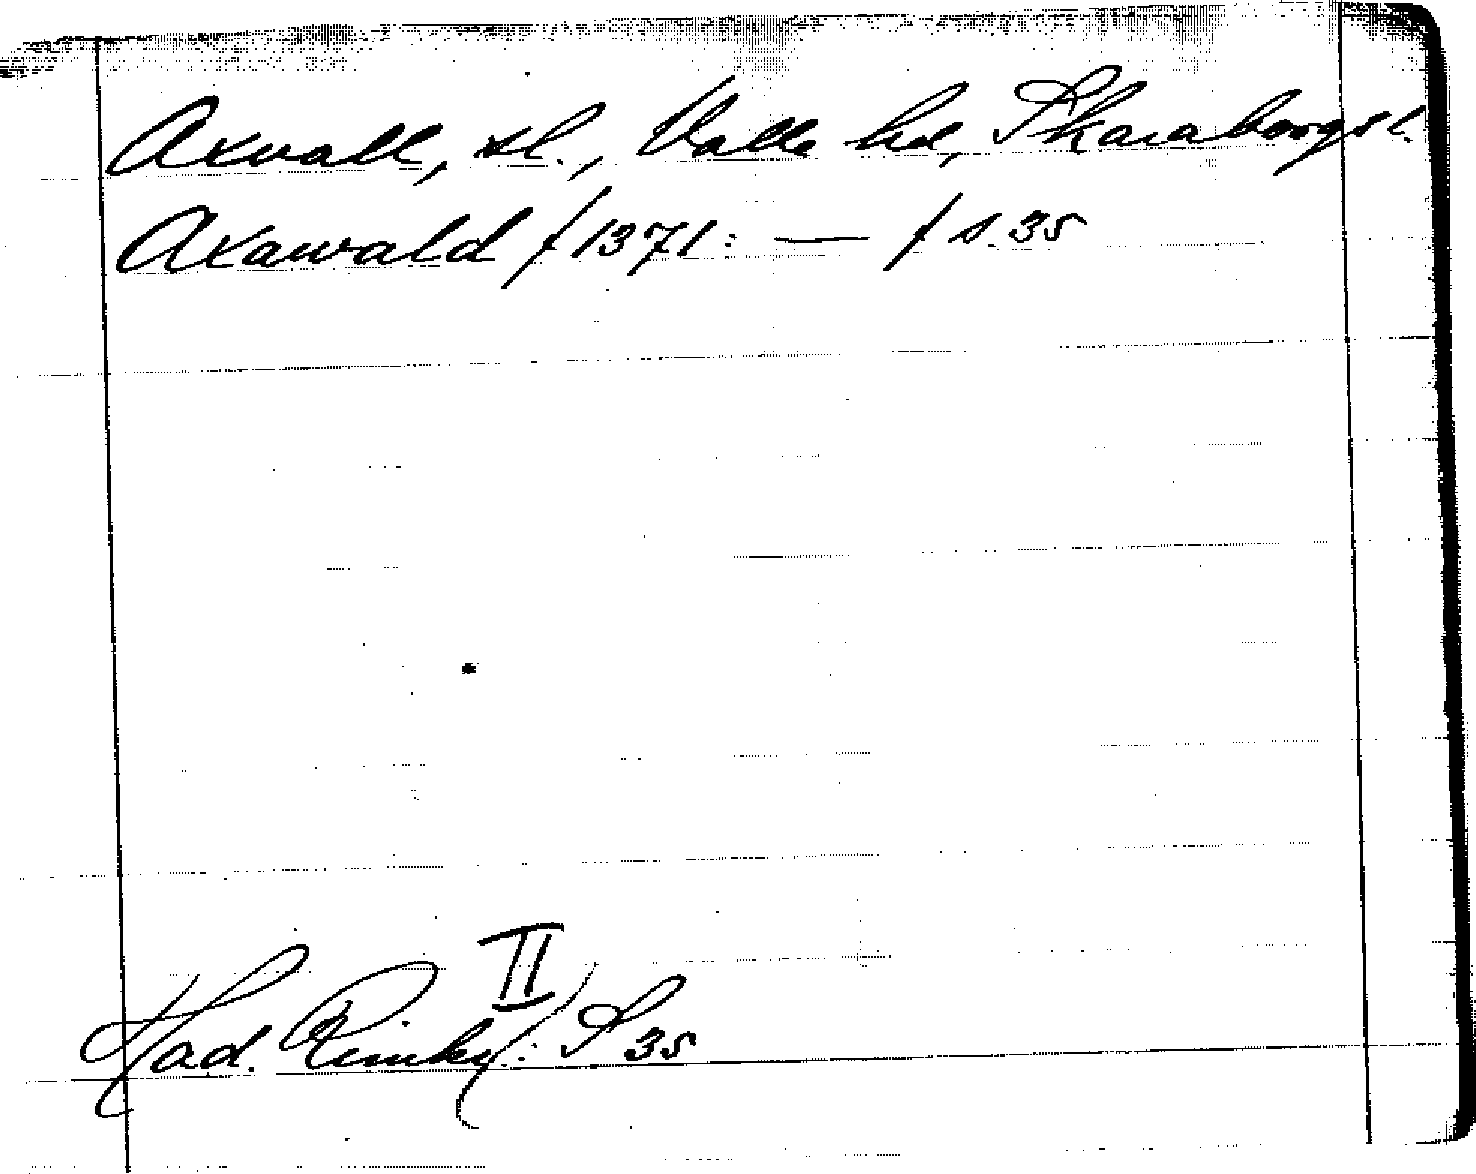 Axvall, sl., Valle hd, Skaraborgs l.
Axawald /1371: — / s. 35
II
Had. Rimkr.: S 35